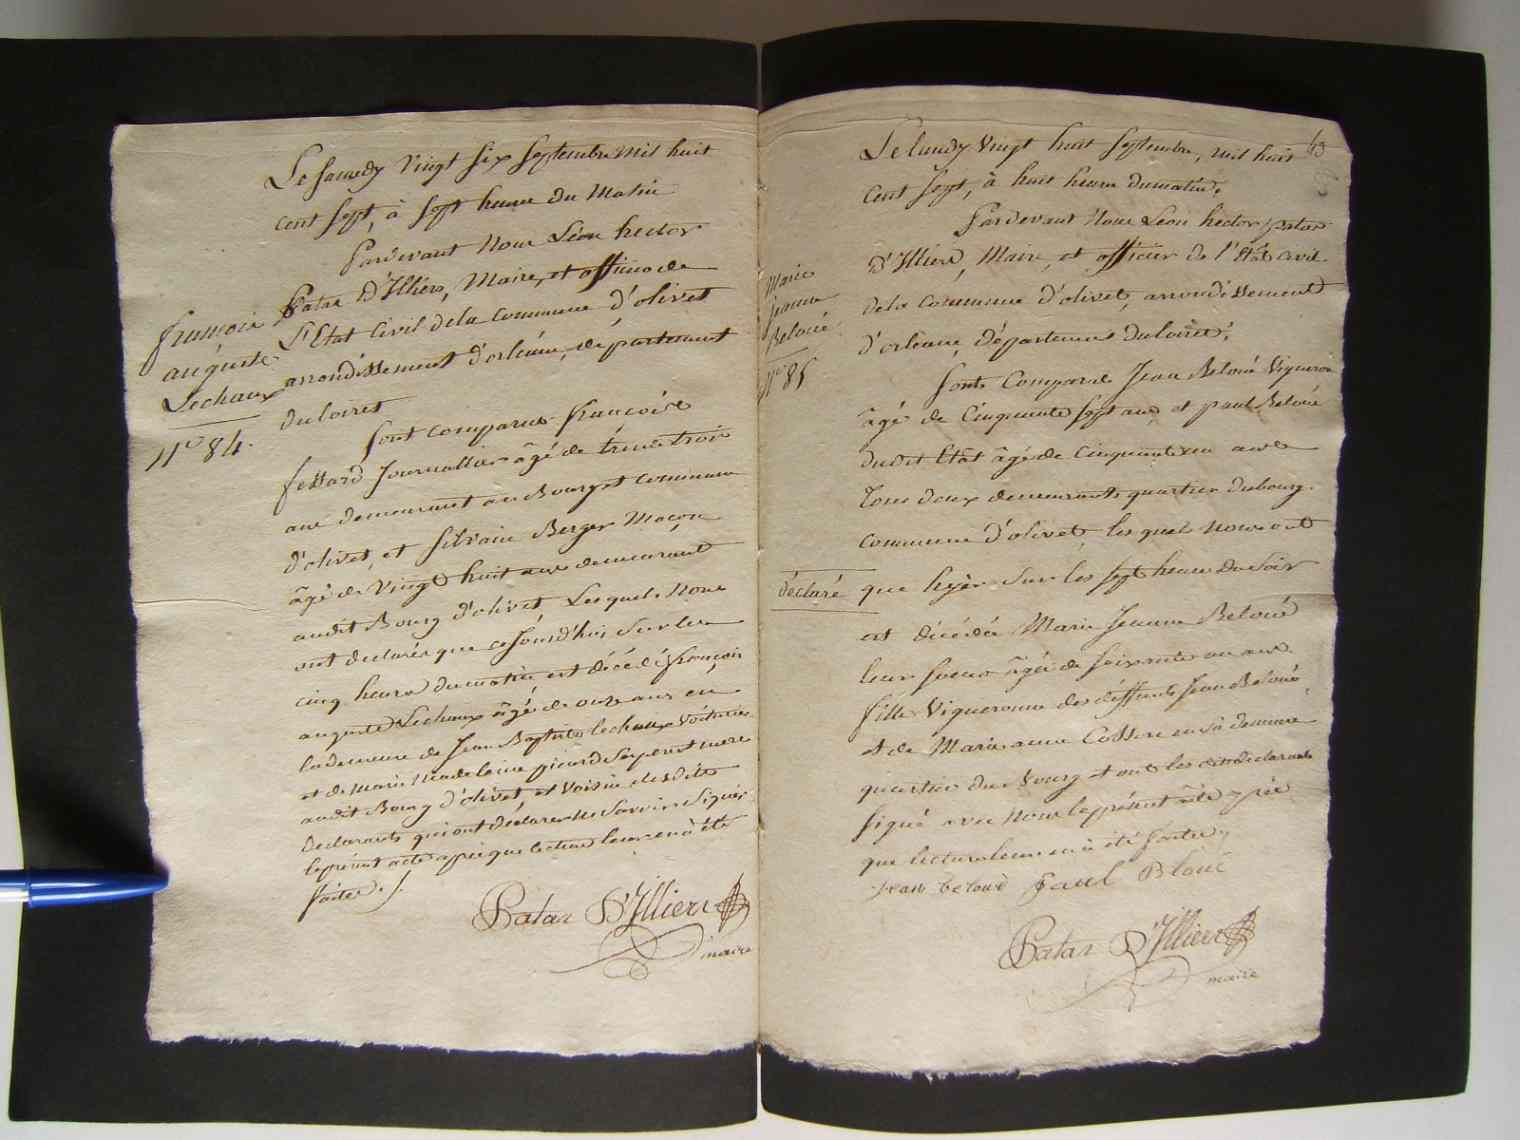 Le samedy vingt six septembre mil huit
cent sept, à sept heure du matin
Pardevant nous Léon hector
Patas D'Illiers, Maire, et officier de
L'Etat Civil dela commune d'olivet
arrondissement d'orléans, département
du loiret
françois
auguste
Lechaux
N° 84.
sont comparus françois
fessard Journallier âgé de trente trois
ans demeurant au Bourg et commune
d'olivet, et silvain Berger Maçon
âgé de vingt huit ans demeurant
audit Bourg d'olivet Lesquels Nous
ont declarés que cejourd'huy sur les
cinq heures du matin est décédé françois
auguste Lechaux âgé de onze ans en
la demeure de Jean Baptiste lechaux voiturier
et de marie Madeleine picard ses pere et mere
audit Bourg d'olivet, et voisin desdits
declarants qui ont declarer ne savoir signer
le présent acte apprès que lecture leur en à été
faite ./.
Patas D'Illiers
maire
63
Le lundy vingt huit septembre, mil huit
cent sept, à huit heure du matin,
Pardevant Nous Léon hector patas
D'Illiers, Maire, et officier de l'état civil
dela commune d'olivet, arrondissement
d'orléans, département du loiret,
Marie
jeanne
Beloué
N° 85
sont comparus Jean Beloué vigneron
âgé de cinquante sept ans, et paul Beloué
dudit Etat âgé de cinquante un ans
tous deux demeurants quartier du bourg
commune d'olivet, lesquels nous ont
déclaré que hyer sur les sept heure du soir
est décédée Marie Jeanne Beloué
leur soeur âgée de soixante un ans
fille vigneronne des deffunts Jean Beloué
et de Marie anne Cosson en sa demeure
quartier du Bourg et ont les dits declarants
signé avec nous le présent acte après
que lecture leur en à été faite
jean beloué paul Bloué
Patas D'Illiers
maire